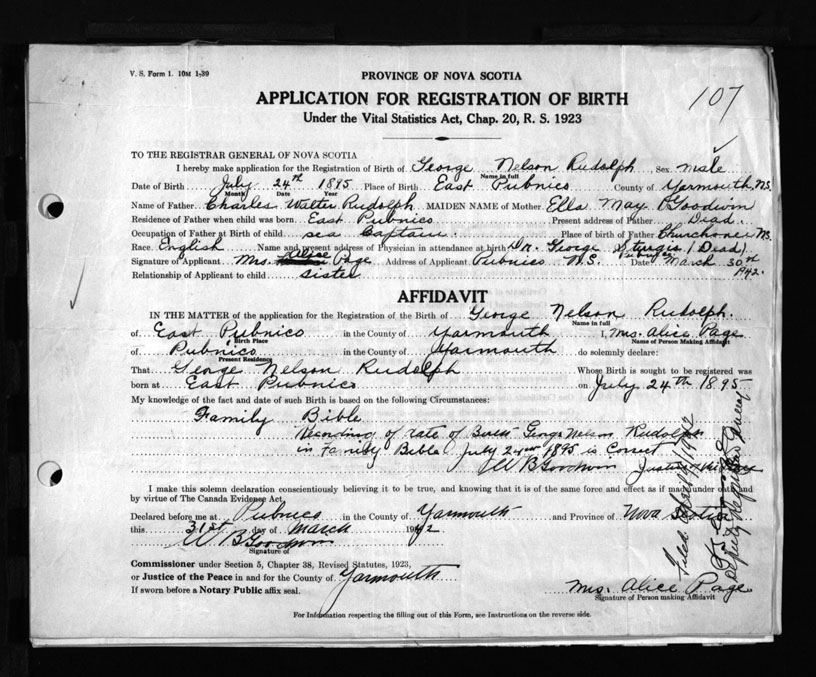 V. S. Form 1. 10M 1-39
PROVINCE OF NOVA SCOTIA
107
APPLICATION FOR REGISTRATION OF BIRTH
Under the Vital Statistics Act, Chap. 20, R. S. 1923
TO THE REGISTRAR GENERAL OF NOVA SCOTIA
I hereby make application for the Registration of Birth of George Nelson Rudolph Sex male
Name in full
Date of Birth July 24th 1895 Place of Birth East Pubnico County of Yarmouth N.S.
Month Day Year
Name of Father Charles Walter Rudolph MAIDEN NAME of Mother Ella May Goodwin
Residence of Father when child was born East Pubnico Present address of Father Dead
Occupation of Father at Birth of child sea Captain Place of birth of Father N.S.
Race English Name and present address of Physician in attendance at birth Dr. George Sturgis (Dead)
Pubnico
Signature of Applicant Mrs. Alice Page Address of Applicant Pubnico N.S. Date March 30th
1942.
Relationship of Applicant to child sister
AFFIDAVIT
IN THE MATTER of the application for the Registration of Birth of George Nelson Rudolph.
Name in full
of East Pubnico in the County of Yarmouth I, Mrs. Alice Page
Birth Place Name of Person Making Affidavit
of Pubnico in the County of Yarmouth do solemnly declare:
Present Residence
That George Nelson Rudolph Whose Birth is sought to be registered was
born at East Pubnico on July 24th 1895
My knowledge of the fact and date of such Birth is based on the following Circumstances:
Family Bible
Recording of date of Birth George Nelson Rudolph
in Family Bible July 24 1895 is Correct
W B Goodwin Justice
I make this solemn declaration conscientiously believing it to be true, and knowing that it is of the same force and effect as if made under oath and
by virtue of The Canada Evidence Act.
Declared before me at Pubnico in the County of Yarmouth and Province of Nova Scotia
this 31st day of March 1942
W B Goodwin
Signature of
Commissioner under Section 5, Chapter 38, Revised Statutes, 1923,
or Justice of the Peace in and for the County of Yarmouth
If sworn before a Notary Public affix seal.
Mrs. Alice Page
Signature of Person making Affidavit
For Information respecting the filling out of this Form, see Instructions on the reverse side.
Deputy Registrar General